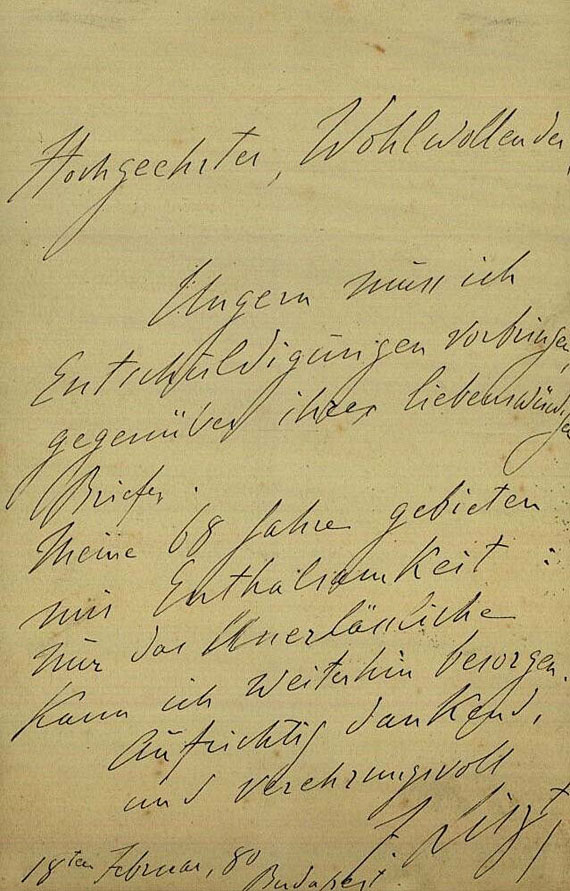 Hochgeehrter, Wohlwollender,
Ungern muss ich
Entschuldigungen vorbringen,
gegenüber ihres liebenswürdigen
Briefes.
Meine 68 Jahre gebieten
mir Enthaltsamkeit:
nur das Unerlässliche
kann ich weiterhin besorgen.
Aufrichtig dankend,
und verehrungsvoll
F. Liszt
18ten Februar, 80
Budapest.